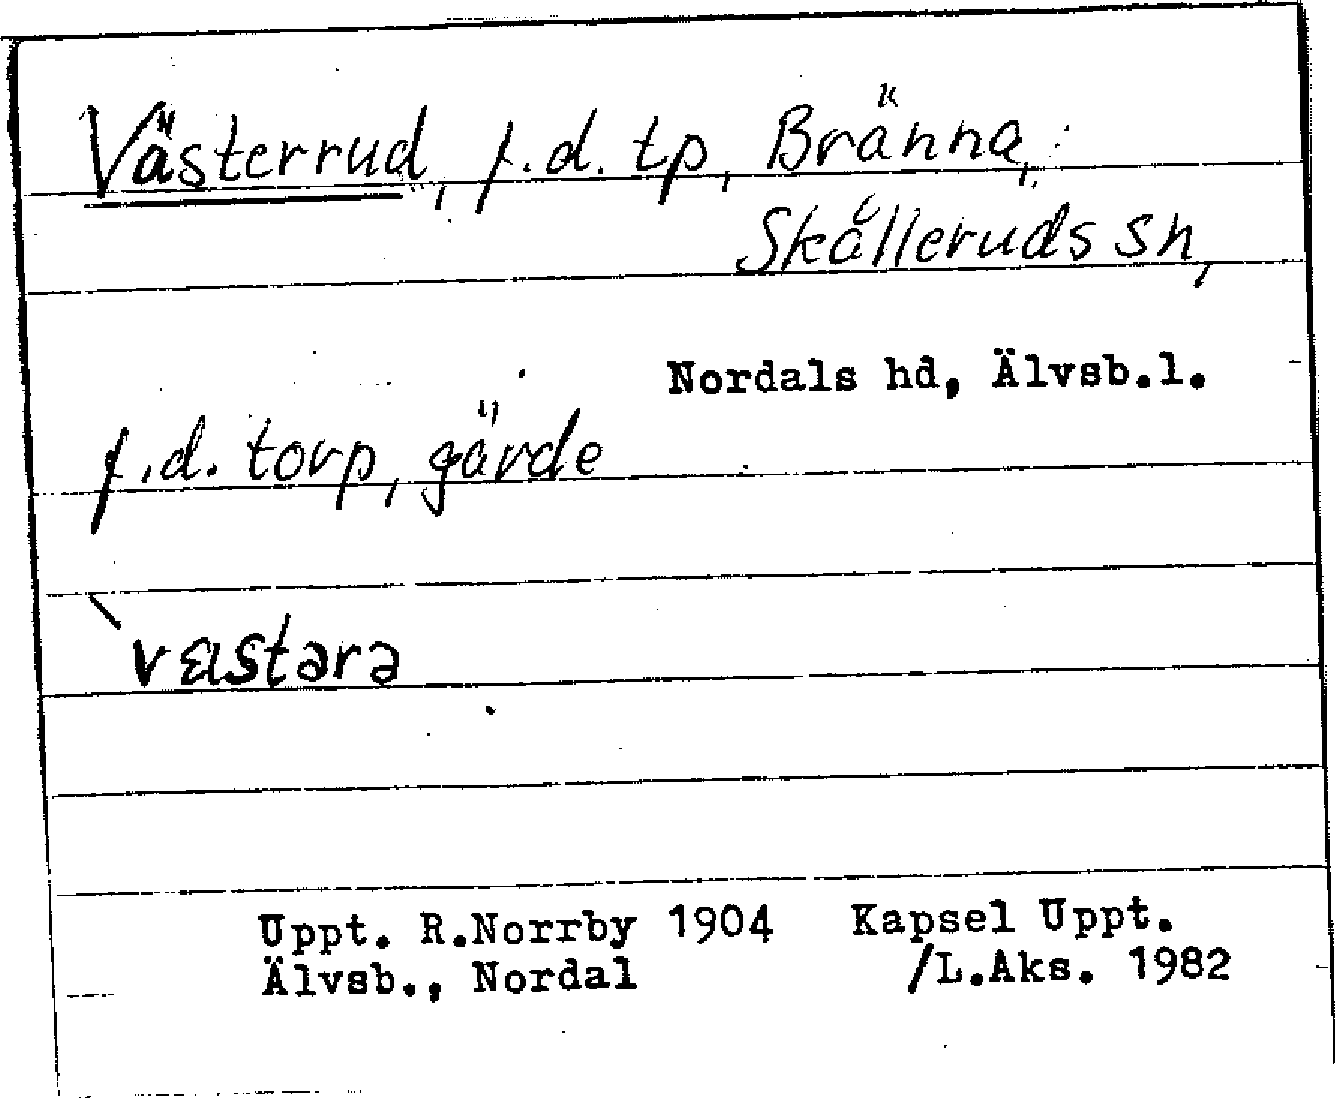 Västerrud, f.d. tp, Bränna,
Skålleruds sn,
Nordals hd, Älvsb.l.
f.d. torp, gärde
`væstərə
Uppt. R.Norrby 1904 Kapsel Uppt.
Älvsb., Nordal /L.Aks. 1982